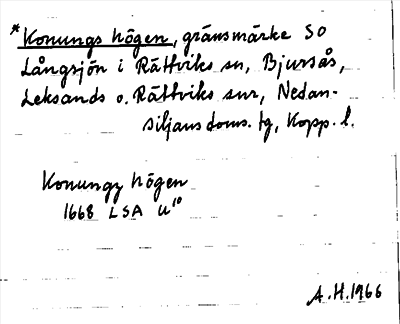 *Konungs högen, gränsmärke SO
Långsjön i Rättviks sn, Bjursås,
Leksands o. Rättviks snr, Nedan-
siljans doms. tg, Kopp. l.
Konungz högen
1668 LSA U¹⁰
A.H. 1966